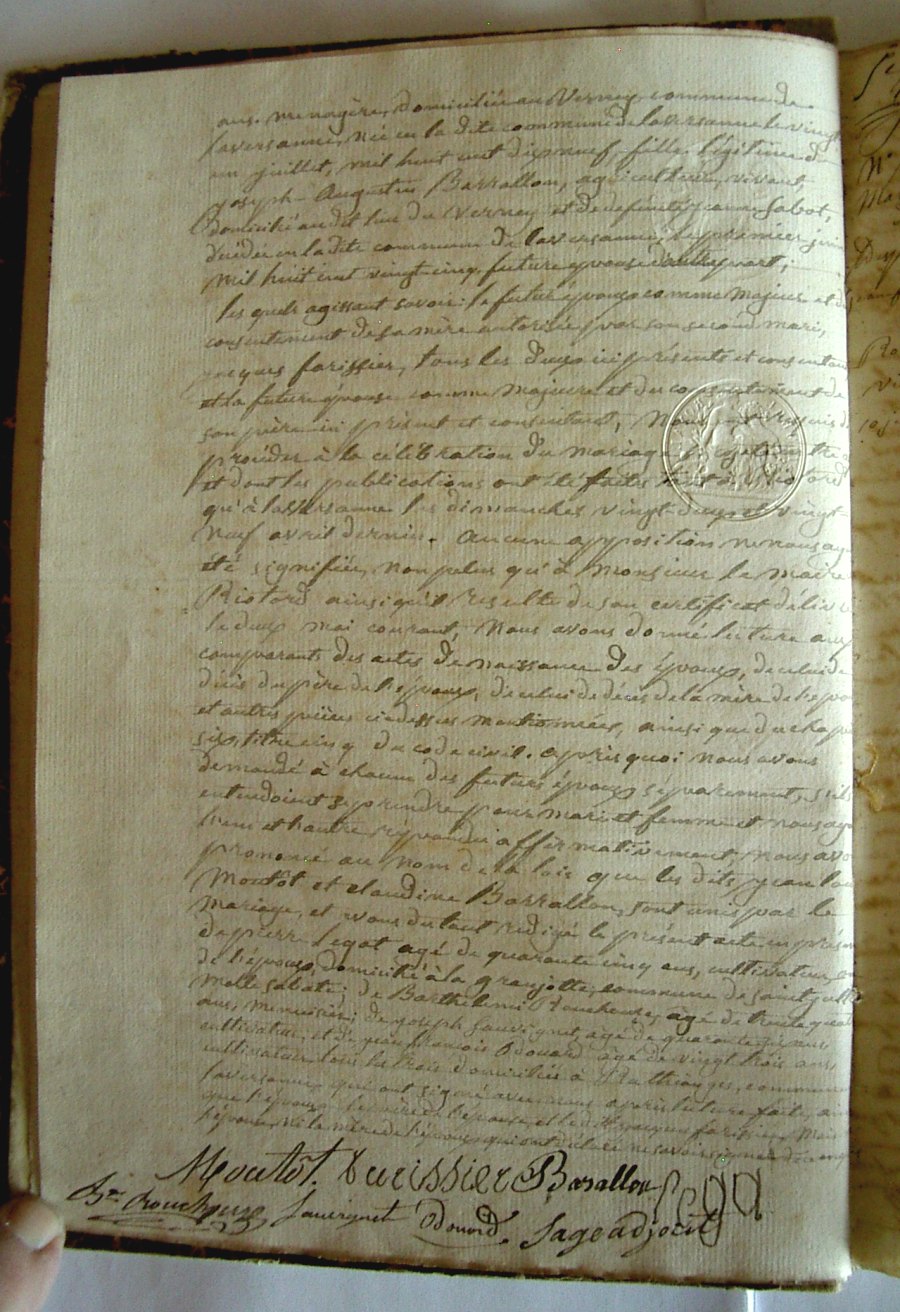 ans, menagère, domiciliée au Verney commune de
laversanne, née en la dite commune de laversanne le vingt
un juillet, mil huit cent dix neuf, fille légitime d
joseph-Augustin Barrallon, agriculteur, vivant,
domicilié au dit lieu du Verney et de defunte jeanne Sabot,
décédée en la dite commune de laversanne, le premier juin
mil huit cent vingt cinq, future épouse d'autre part;
les quels agissant savoir: le futur époux comme majeur et du
consentement de sa mère autorisée par son second mari,
jacques farissier, tous les deux ici présents et consentant
et la future épouse comme majeure et du consentement de
son père ici présent et consentant, Nous ont requis de
procéder à la célébration du mariage projeté entre
et dont les publications ont été faites tant à Riotord
qu'à laversanne les dimanches vingt deux et vingt-
neuf avril dernier. aucune opposition ne nous ay
été signifiée, non plus qu'à Monsieur le maire
Riotord ainsi qu'il résulte de son certificat délivré
le deux mai courant, Nous avons donné lecture aux
comparants des actes de naissance des époux, de celui de
décès du père de l'époux, de celui de décès de la mère de l'épou
et autres pièces ci dessus mentionnées, ainsi que du chap
six, titre cinq du code civil. après quoi nous avons
demandé à chacun des futurs époux séparément, s'ils
entendoient se prendre pour mari et femme et nous aya
l'un et l'autre répondu affirmativement, Nous avo
prononcé au nom de la loi que les dits jean lou
Moutôt et claudine Barrallon, sont unis par le
mariage, et avons du tout rédigé le présent acte en prése
de pierre Legat agé de quarante cinq ans, cultivateur,
de l'époux, domicilié à la commune de saint jul
molle sabate; de Barthelemi Rouchouse, agé de trente quat
ans, menuisier; de joseph Sauvignet, agé de quarante ans
cultivateur, et de jean françois Odouard agé de vingt trois ans,
cultivateur, tous les trois domiciliés à commune
laversanne qui ont signé avec nous après lecture faite, ain
que l'époux, le père de l'épouse et le dit jacques farissier, Mais
l'épouse, ni la mère de l'époux qui ont déclaré ne savoir signer
Moutôt. farissier Barallon Legat
Bmi Rouchouse Sauvignet Odouard Sage adjoint